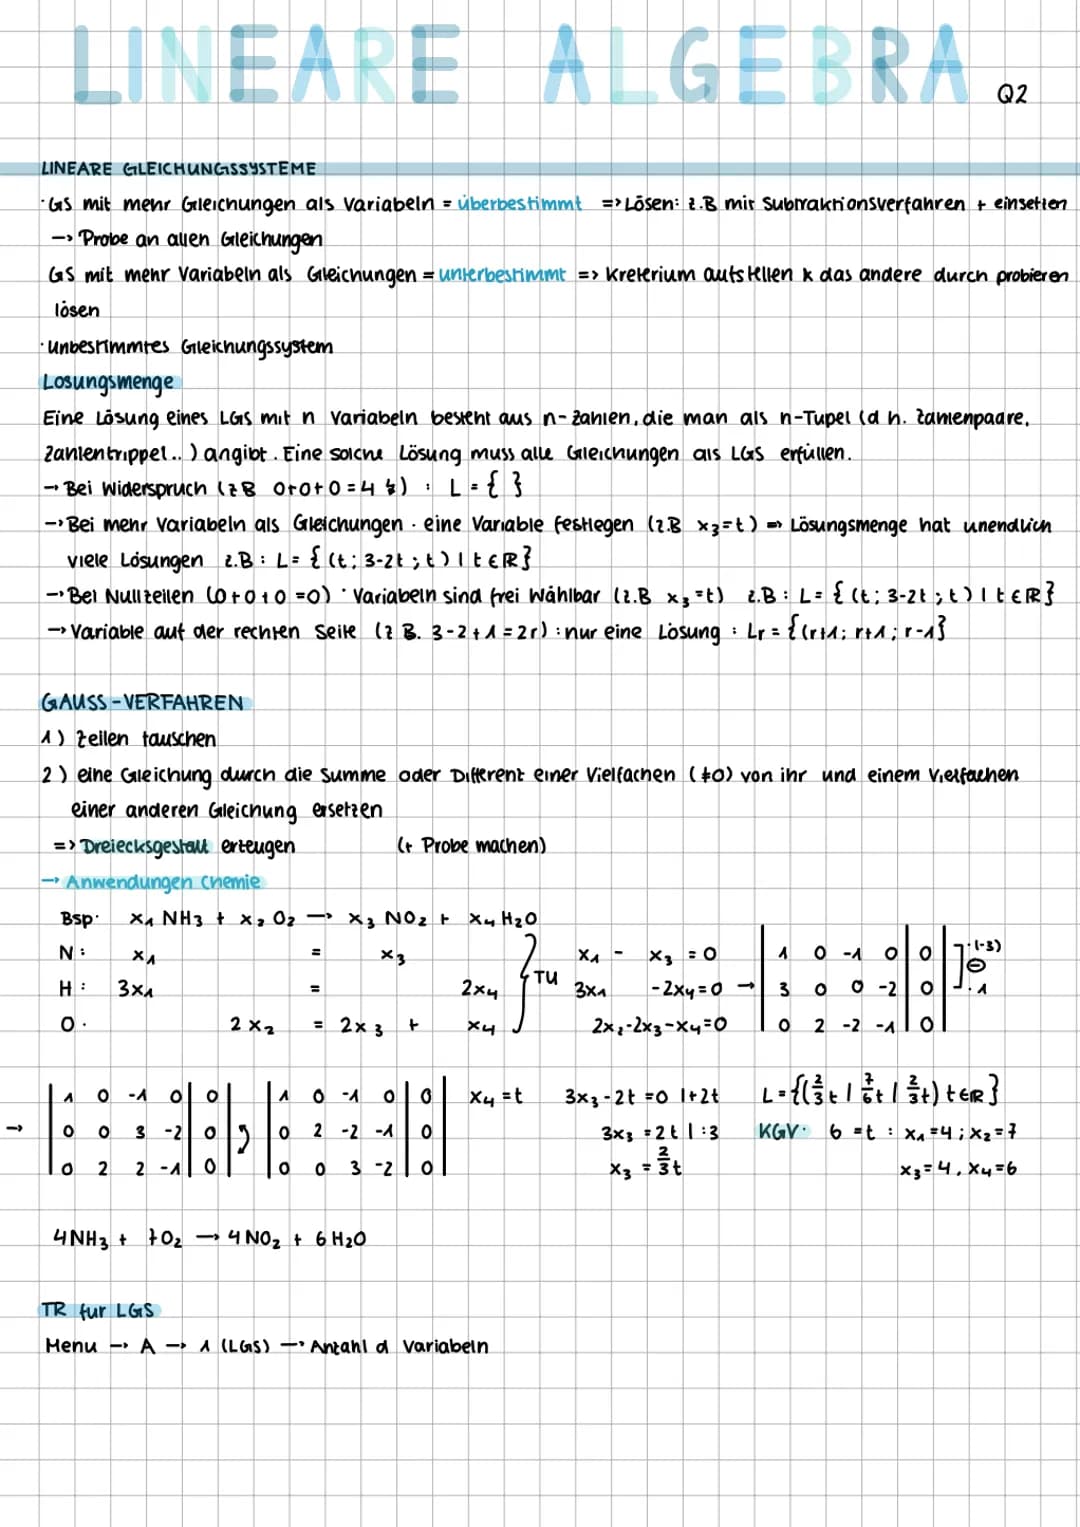 LINEARE ALGEBRA Q2
LINEARE GLEICHUNGSSYSTEME
· GS mit mehr Gleichungen als Variabeln = überbestimmt => Lösen: z.B mit Subtraktionsverfahren + einsetzen
→ Probe an allen Gleichungen
GS mit mehr Variabeln als Gleichungen = unterbestimmt => Kreterium aufstellen & das andere durch probieren
lösen
· Unbestimmtes Gleichungssystem
Losungsmenge
Eine Lösung eines LGS mit n Variabeln besteht aus n-Zahlen, die man als n-Tupel (d h. Zahlenpaare,
Zahlentrippel..) angibt. Eine solche Lösung muss alle Gleichungen als LGS erfüllen.
→ Bei Widerspruch (z B 0+0+0=4 ↯) : L = { }
→ Bei mehr Variabeln als Gleichungen · eine Variable festlegen (z.B x₃=t) => Lösungsmenge hat unendlich
viele Lösungen z.B : L= { (t; 3-2t ; t) | t ∈ R}
→ Bei Nullzeilen (0+0+0 =0) · Variabeln sind frei Wählbar (z.B x₃=t) z.B : L= { (t; 3-2t ; t) | t ∈ R}
→ Variable auf der rechten Seite (z B. 3-2+1=2r) : nur eine Lösung : Lr = {(r+1; r+1; r-1}
GAUSS-VERFAHREN
1) Zeilen tauschen
2) eine Gleichung durch die Summe oder Different einer Vielfachen (≠0) von ihr und einem Vielfachen
einer anderen Gleichung ersetzen
=> Dreiecksgestalt erzeugen (+ Probe machen)
→ Anwendungen Chemie
Bsp· x₁ NH₃ + x₂ O₂ → x₃ NO₂ + x₄ H₂O
N : x₁ = x₃ x₁ - x₃ = 0 | 1 0 -1 0 | 0 | ·(-3)
H : 3x₁ = 2x₄ } TU 3x₁ -2x₄=0 → | 3 0 0 -2 | 0 | ⊖ ·1
O · 2x₂ = 2x₃ + x₄ 2x₂-2x₃-x₄=0 | 0 2 -2 -1 | 0 |
| 1 0 -1 0 | 0 | | 1 0 -1 0 | 0 | x₄=t 3x₃-2t=0 |+2t L={(2/3 t | 7/6 t | 2/3 t) t∈R}
→ | 0 0 3 -2 | 0 | | 0 2 -2 -1 | 0 | 3x₃=2t |:3 KGV· 6=t : x₁=4; x₂=7
| 0 2 2 -1 | 0 | | 0 0 3 -2 | 0 | x₃=2/3 t x₃=4, x₄=6
4NH₃ + 7O₂ → 4NO₂ + 6H₂O
TR fur LGS
Menu → A → 1 (LGS) → Anzahl d Variabeln